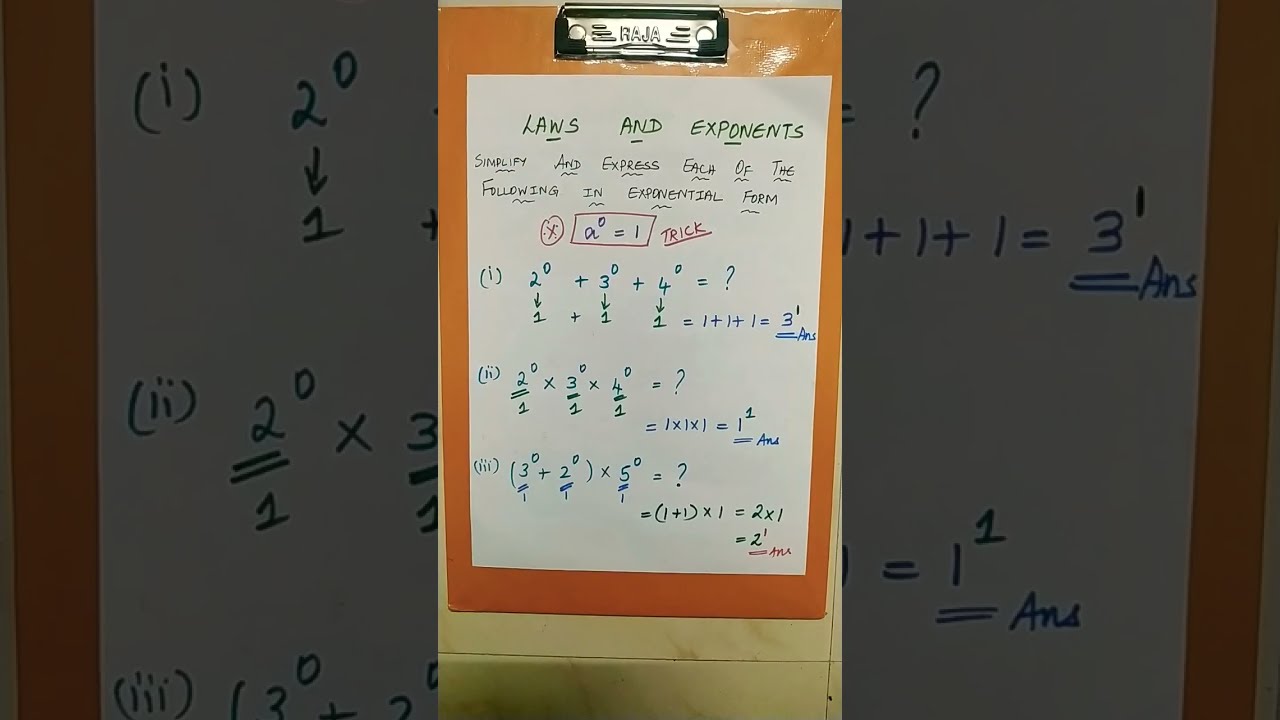 RAJA
LAWS AND EXPONENTS
SIMPLIFY AND EXPRESS EACH OF THE
FOLLOWING IN EXPONENTIAL FORM
(*) a⁰ = 1 TRICK
(i) 2⁰ + 3⁰ + 4⁰ = ?
↓ ↓ ↓
1 + 1 1 = 1+1+1 = 3¹ Ans
(ii) 2⁰ × 3⁰ × 4⁰ = ?
1 1 1
= 1×1×1 = 1¹ Ans
(iii) (3⁰ + 2⁰) × 5⁰ = ?
1 1 1
= (1+1) × 1 = 2×1
= 2¹ Ans
(i) 2⁰
↓
1 +
(ii) 2⁰ × 3
1 1
(iii) (3⁰ + 2⁰
= ?
1+1+1 = 3¹ Ans
= 1¹ Ans